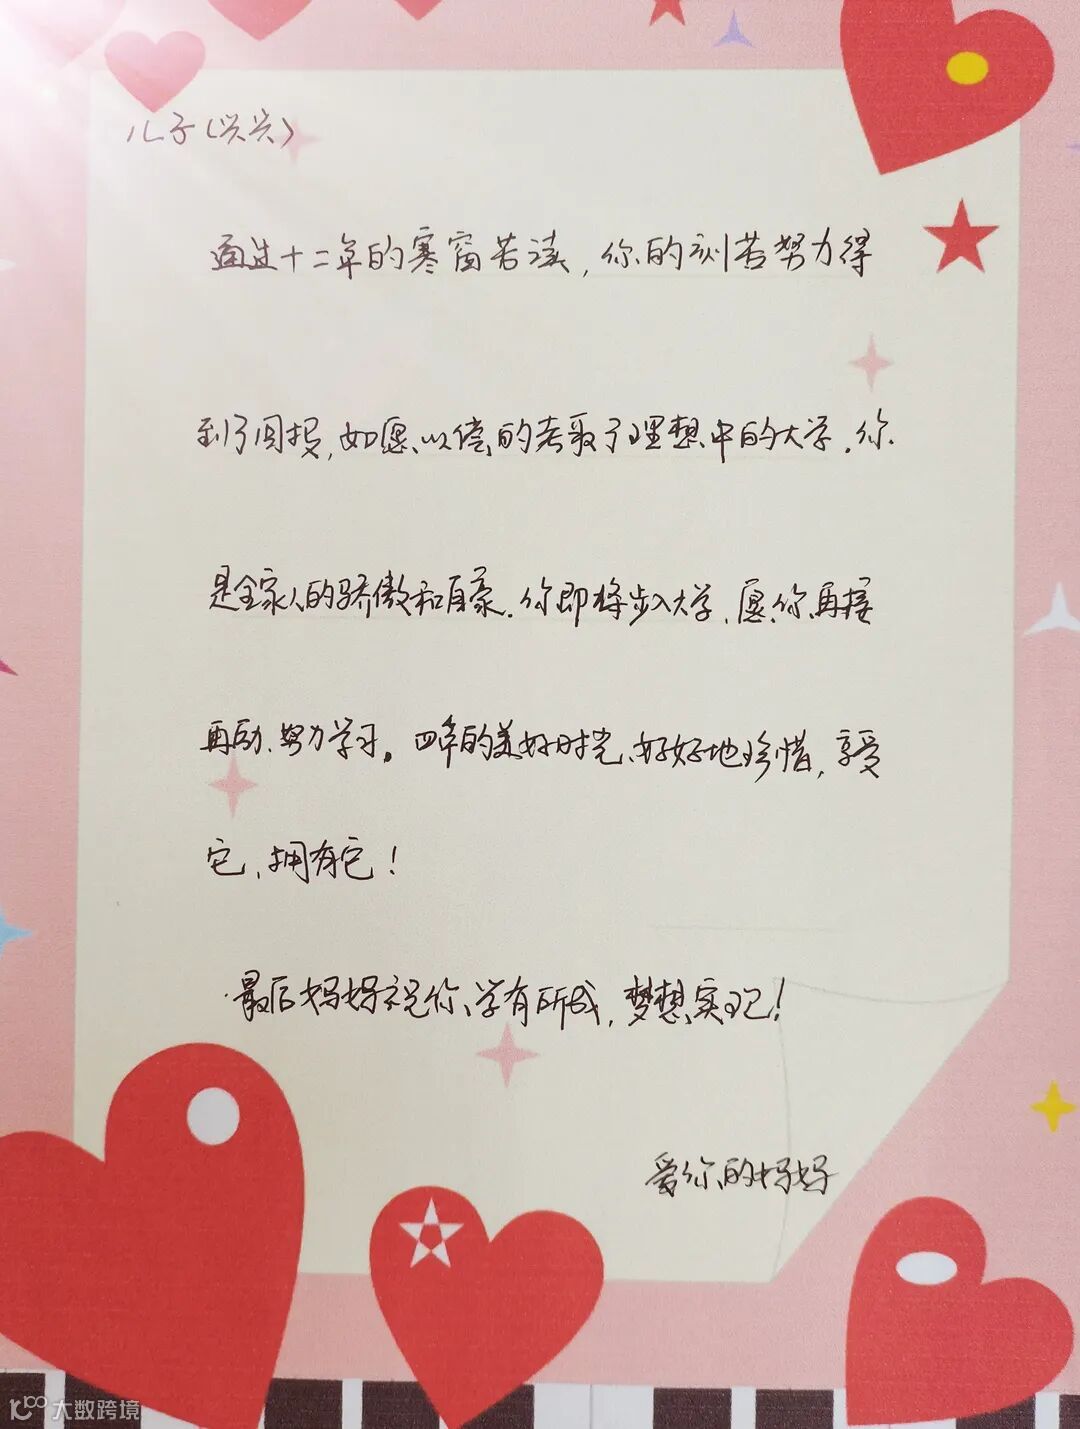 儿子（兴兴）
通过十二年的寒窗苦读，你的刻苦努力得
到了回报，如愿以偿的考取了理想中的大学。你
是全家人的骄傲和自豪。你即将步入大学，愿你再接
再励、努力学习。四年的美好时光、好好地珍惜，享受
它、拥有它！
最后妈妈祝你、学有所成，梦想实现！
爱你的妈妈
大数跨境